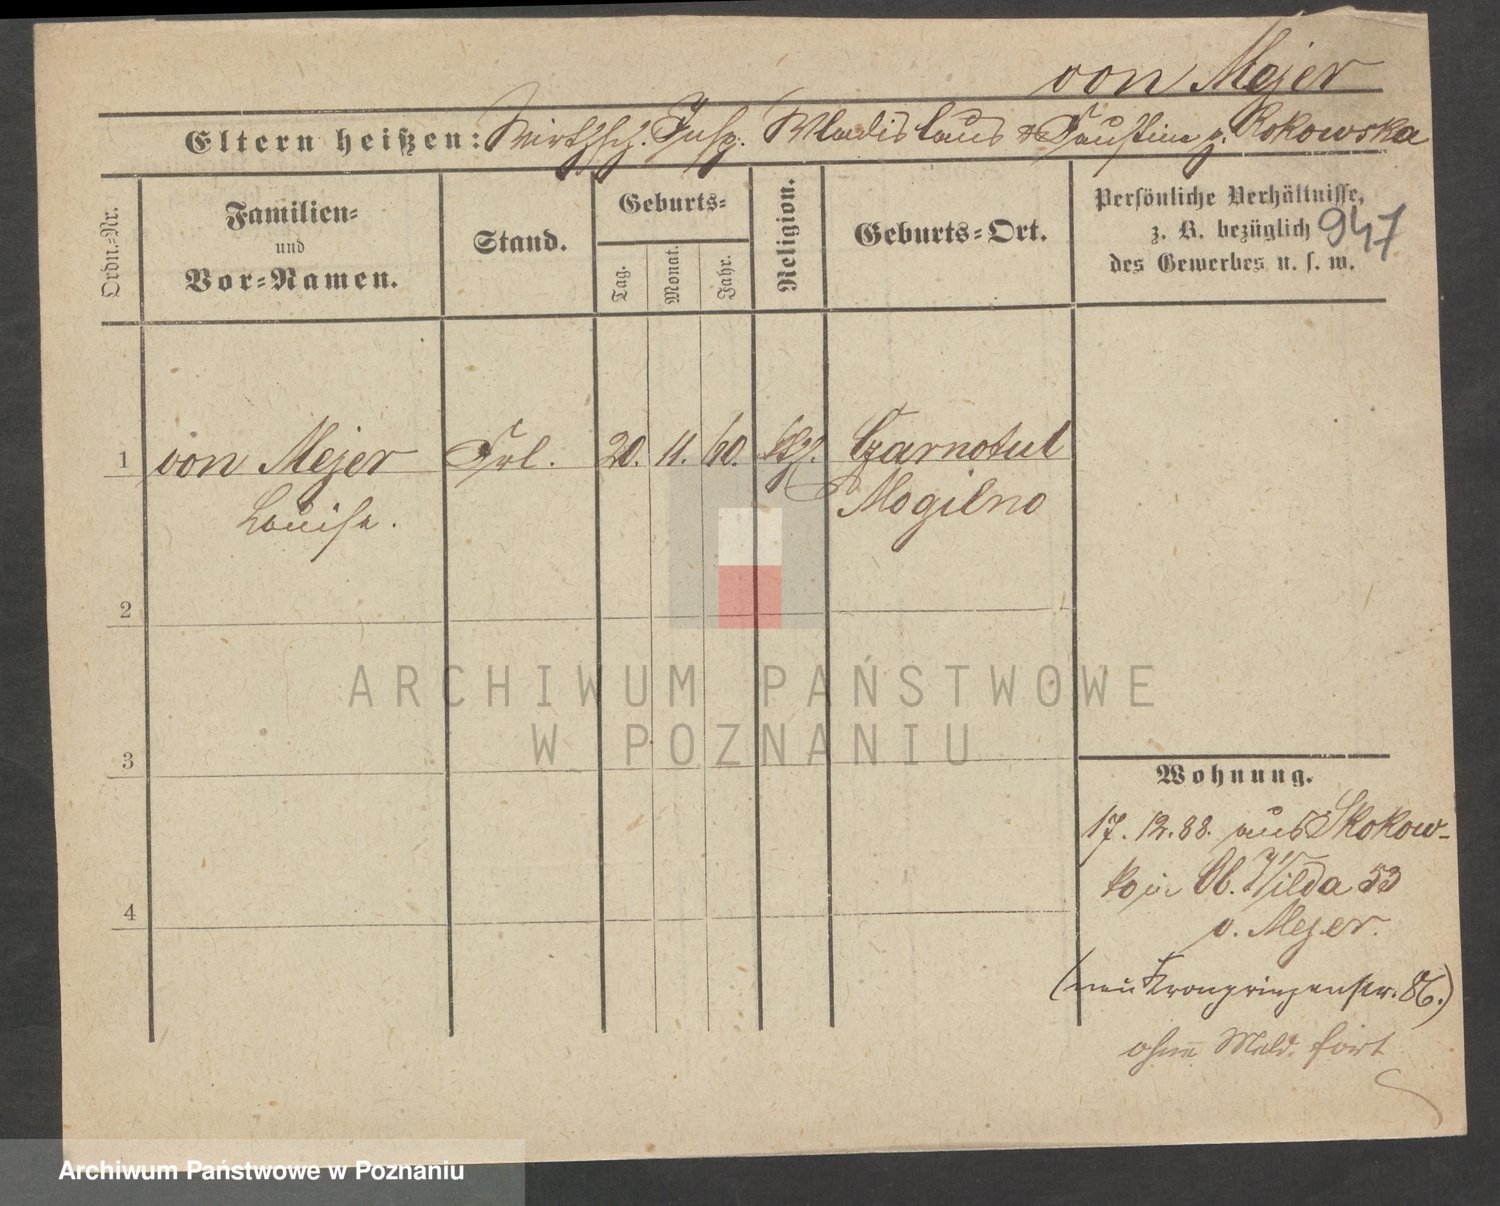 von Mejer
Eltern heißen: Wirthsch. Insp. Wladislaus & Faustine g. Rokowska
Ordn.=Nr.
Familien=
und
Vor=Namen.
Stand.
Geburts=
Tag.
Monat.
Jahr.
Religion.
Geburts=Ort.
Persönliche Verhältnisse,
z. B. bezüglich
des Gewerbes u. s. w.
947
1 von Mejer Frl. 20. 11. 60. kth. Czarnotul
Louise. Mogilno
2
3
4
Wohnung.
17. 12. 88. aus Skokow-
ko in Ob. Wilda 53
v. Mejer.
(neu Kronprinzenstr. 86.)
ohne Meld. fort
ARCHIWUM PAŃSTWOWE
W POZNANIU
Archiwum Państwowe w Poznaniu